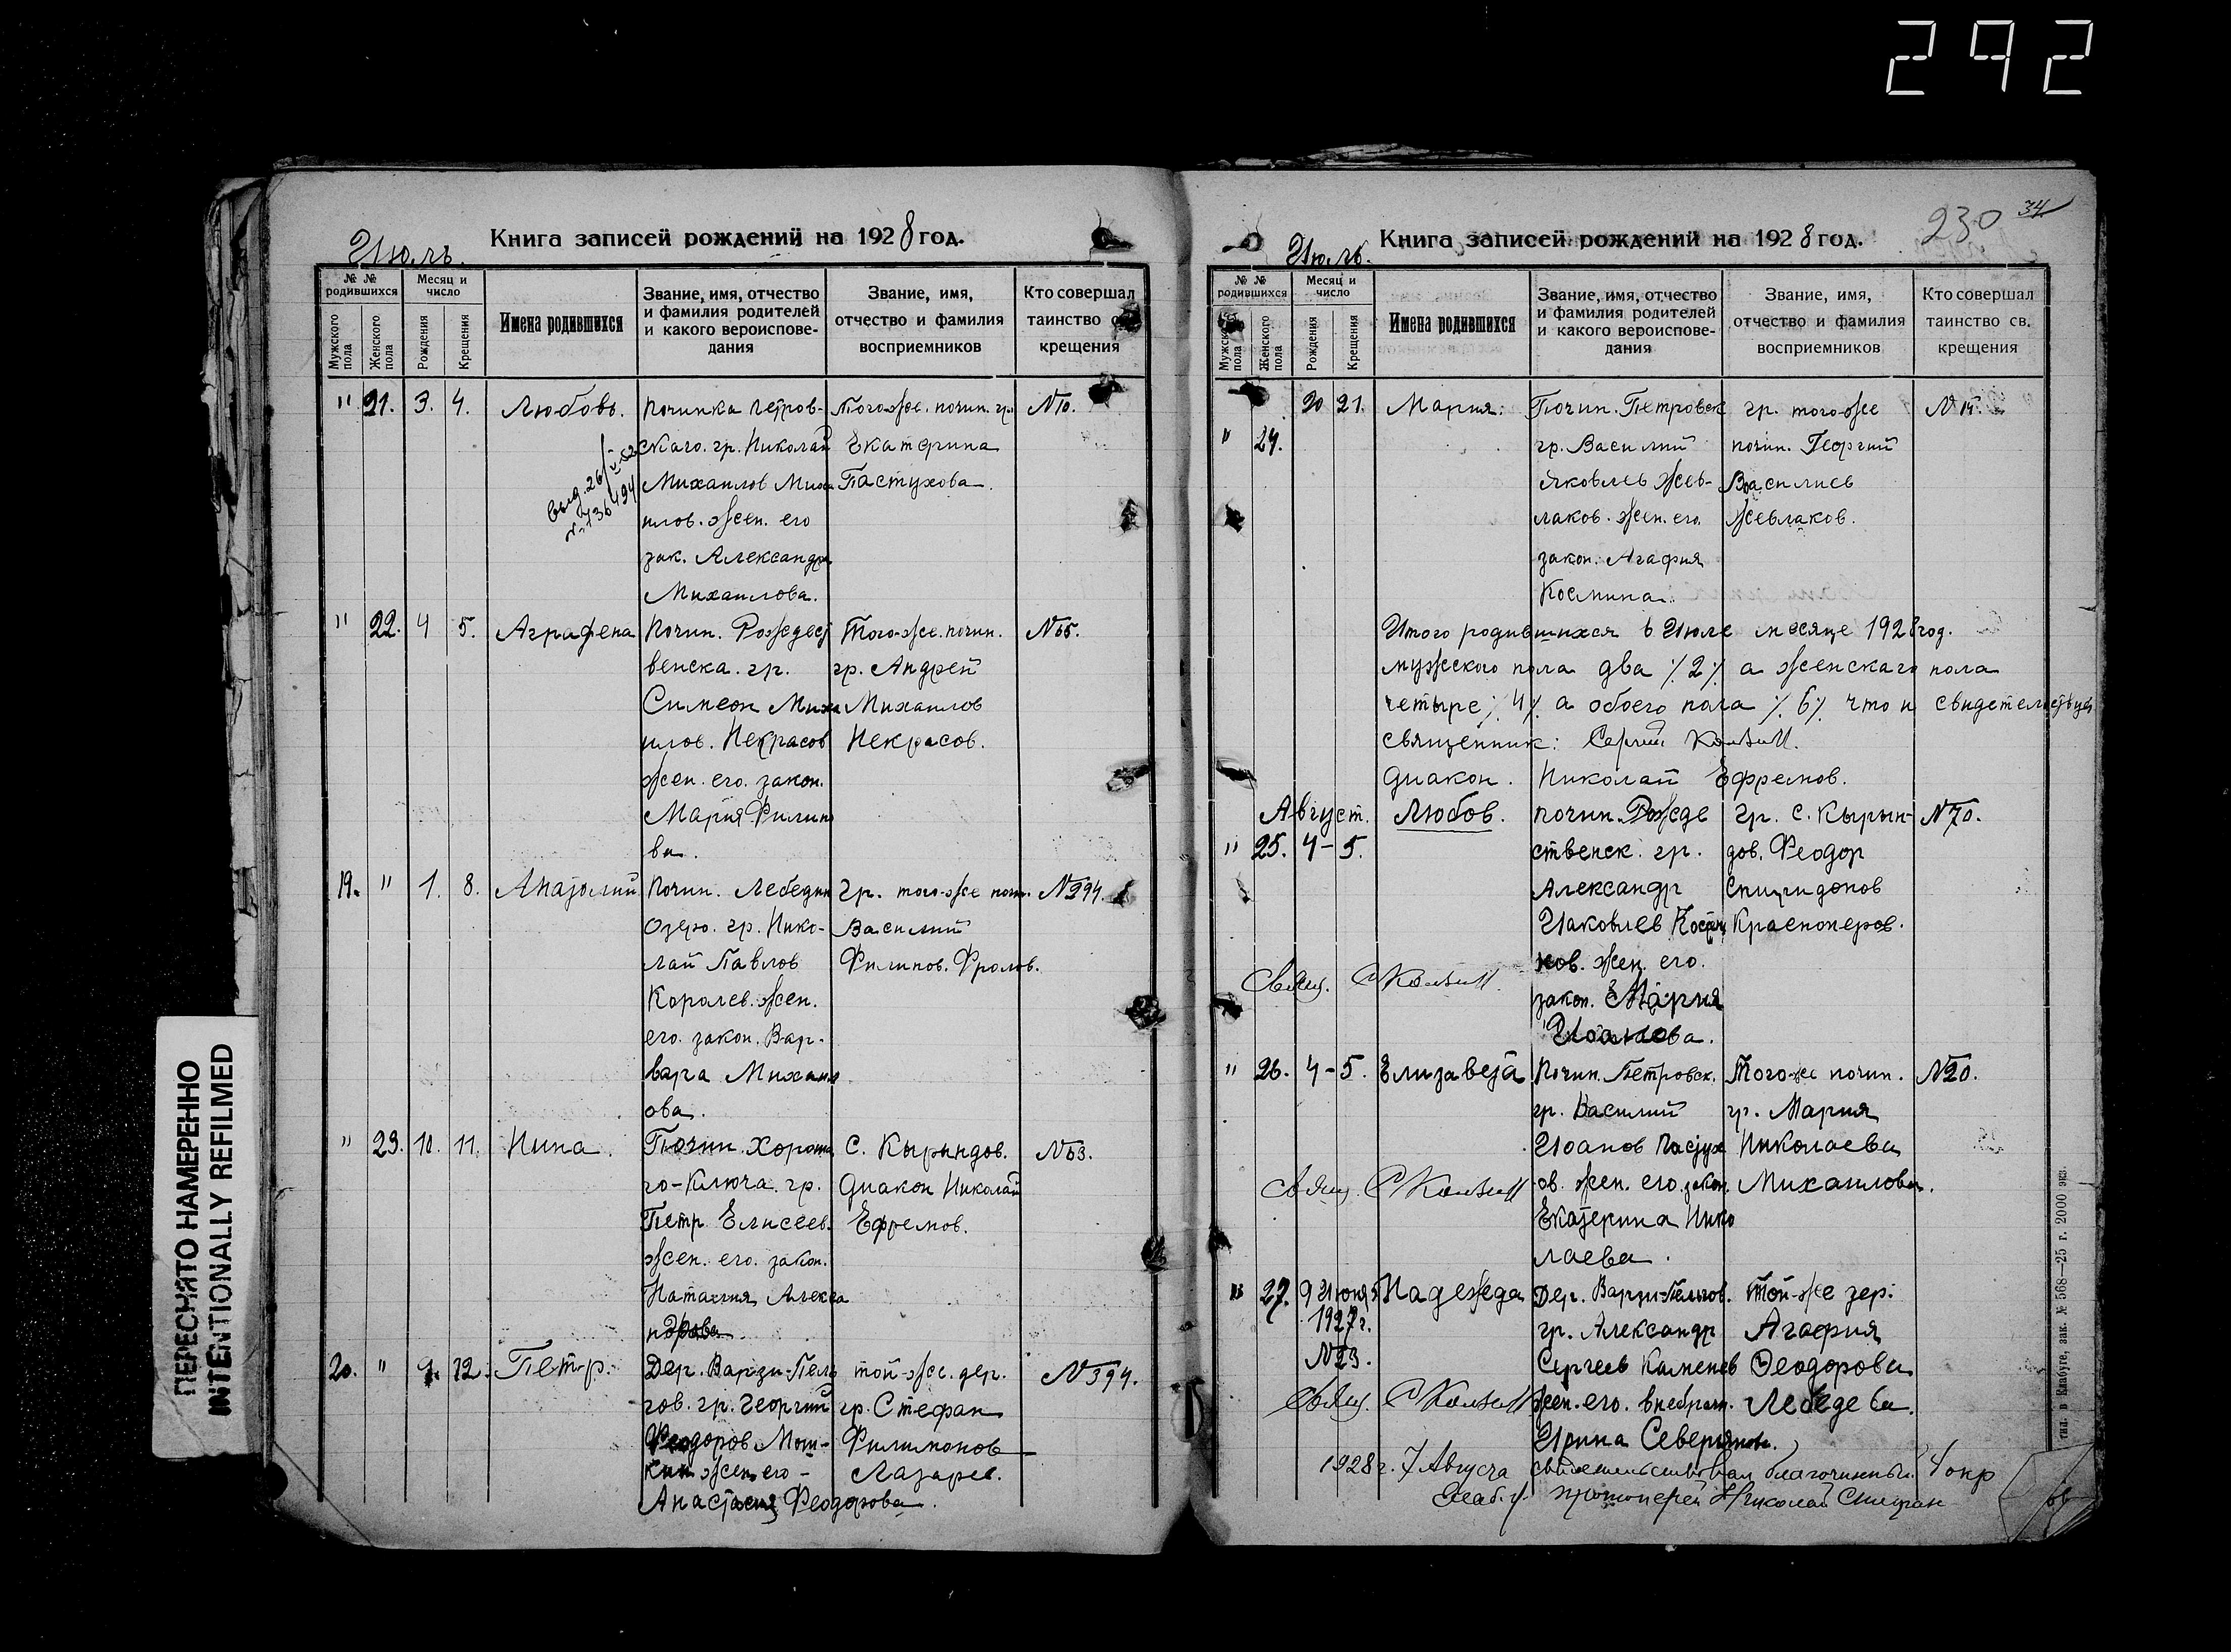 292
230
34
Июль.
Книга записей рождений на 1928 год.
№ № родившихся
Мужского пола
Женского пола
Месяц и число
Рождения
Крещения
Имена родившихся
Звание, имя, отчество и фамилия родителей и какого вероиспове-дания
Звание, имя, отчество и фамилия восприемников
Кто совершал таинство крещения
" 21. 3. 4. Любовь.
Починка Петров-
скаго. гр. Николай
Михаилов Миха
илов. жен. его
зак. Александра
Михаилова.
Того-же. почин. гр.
Екатерина
Пастухова.
N10.
выд. 26/
" 22. 4 5. Аграфена
Почин. Рождест
венска. гр.
Симеон Миха
илов. Некрасов
жен. его. закон.
Мария Филип
ва.
Того-же. почин.
гр. Андрей
Михаилов
Некрасов.
19. " 1. 8. Анатолий
Почин. Лебедин
Озеро. гр. Нико-
лай Павлов
Королев. жен.
его. закон. Вар-
вара Михаил
ова.
гр. того-же поч.
Василий
Филипов. Фролов.
N294.
" 23. 10. 11. Нина.
Почин. Хороша
го-Ключа. гр.
Петр Елисеев.
жен. его. закон.
Наталия Алекса
ндрова
С. Кырындов.
Диакон Николай
Ефремов.
20. " 9. 12. Петр.
Дер. Варзи-Пель
гов. гр. Георгий
Феодоров Мош-
кин жен его -
Анастасия Феодорова.
той-же. дер.
гр. Стефан
Филимонов
Лазарев.
N394.
Июль.
Книга записей рождений на 1928 год.
№ № родившихся
Мужского пола
Женского пола
Месяц и число
Рождения
Крещения
Имена родившихся
Звание, имя, отчество и фамилия родителей и какого вероиспове-дания
Звание, имя, отчество и фамилия восприемников
Кто совершал таинство св. крещения
" 24. 20 21. Мария:
Почин. Петровск
гр. Василий
Яковлев Жев-
лаков. жен. его.
закон. Агафия
Космина.
гр. того-же
почин. Георгий
Василиев
Жевлаков.
Итого родившихся в Июле месяце 1928 год.
мужеского пола два % 2 % а женскаго пола
четыре % 4 % а обоего пола % 6 % что и свидетельствуем
священник: Сергий
диакон. Николай Ефремов.
Август. Любов.
" 25. 4-5.
почин. Рожде
ственск. гр.
Александр
Иаковлев Костр
ков. жен. его.
закон. Мария
Иоанова.
гр. С. Кырын-
дов. Феодор
Спиридонов
Красноперов.
N70.
Свящ.
" 26. 4-5. Елизавета
Почин. Петровск.
гр. Василий
Иоанов Пастух
ов. жен. его. закон.
Екатерина Нико
лаева.
Того-же почин.
гр. Мария
Николаева
Михаилова.
N20.
Свящ.
" 27. 9 Июня Надежда
1927 г.
N23.
Дер. Варзи-Пельгов.
гр. Александр
Сергеев Каменев
жен. его. внебрачн.
Ирина Северьянова.
Той-же дер:
Агафия
Феодорова
Лебедева.
Свящ.
1928 г. 7 Августа свидетельствовал благочинный 4 окр
Елаб. у. протоиерей Николай
тип. в Елабуге, зак. № 568—25 г. 2000 экз.
ПЕРЕСНЯТО НАМЕРЕННО
INTENTIONALLY REFILMED